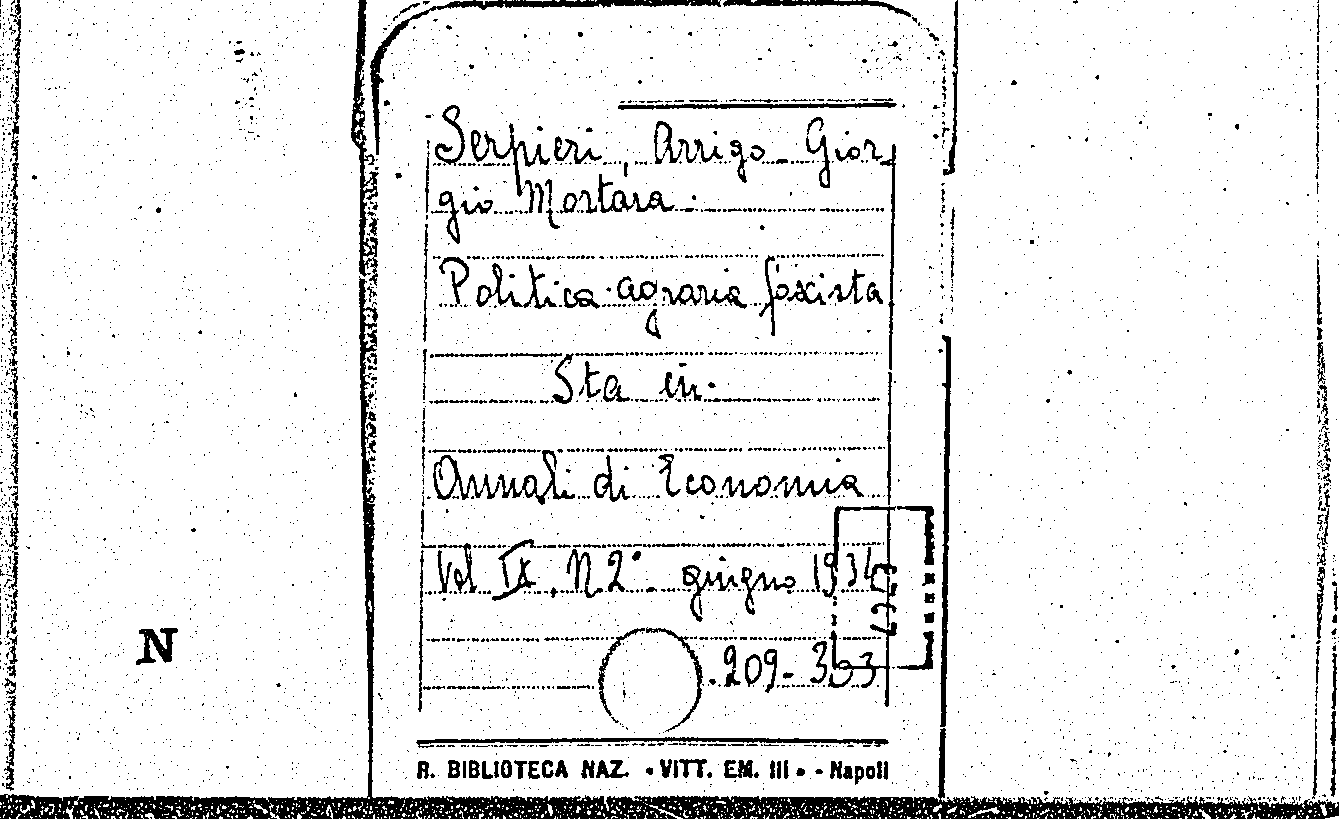 Serpieri, Arrigo - Gior-
gio Mortara.
Politica agraria fascista
Sta in.
Annali di Economia
Vol IX. N. 2° giugno 1934
.209-333
N
R. BIBLIOTECA NAZ. • VITT. EM. III • - Napoli